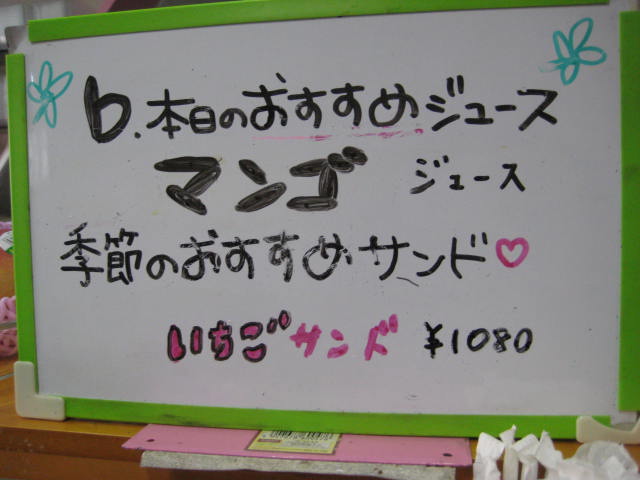 b.本日のおすすめジュース
マンゴ ジュース
季節のおすすめサンド♡
いちごサンド ¥1080